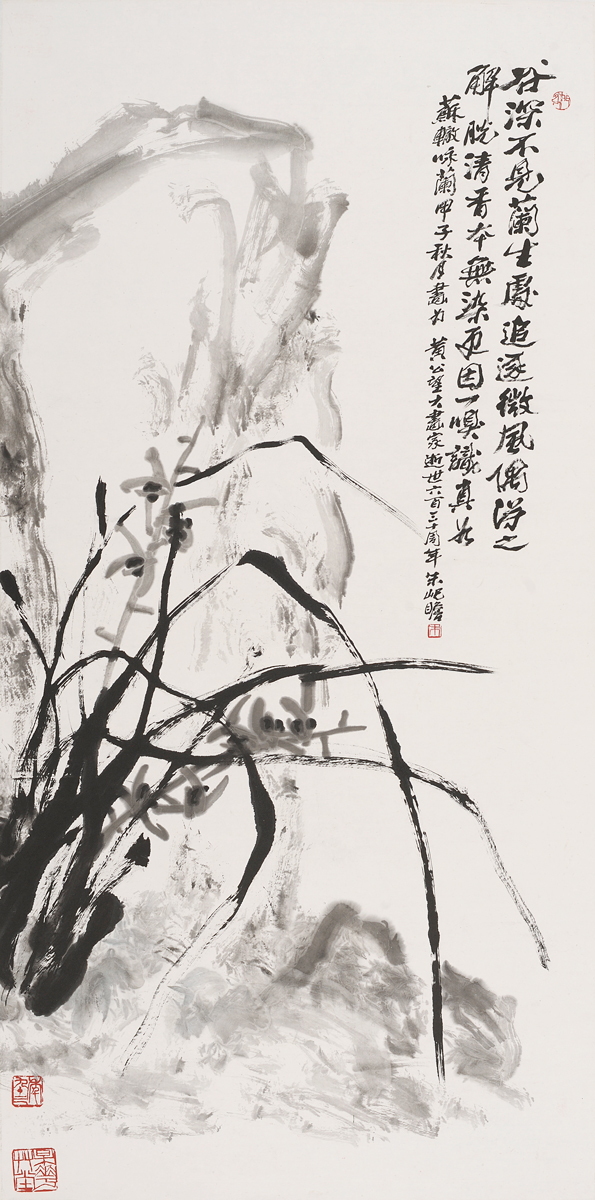 谷深不見蘭生處追逐微風偶得之
解脫清香本無染更因一嗅識真如
蘇轍咏蘭甲子秋月畫黃公望大畫家逝世六百三十周年朱屺瞻
朱